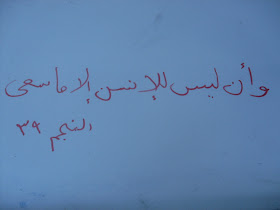 وأن ليس للإنسن إلا ما سعى
النجم ٣٩